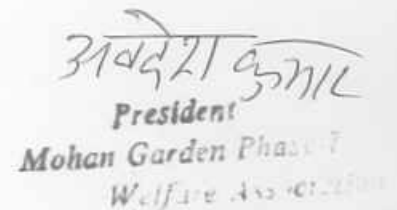 अवदेश कुमार
President
Mohan Garden Phase
Welfare Association